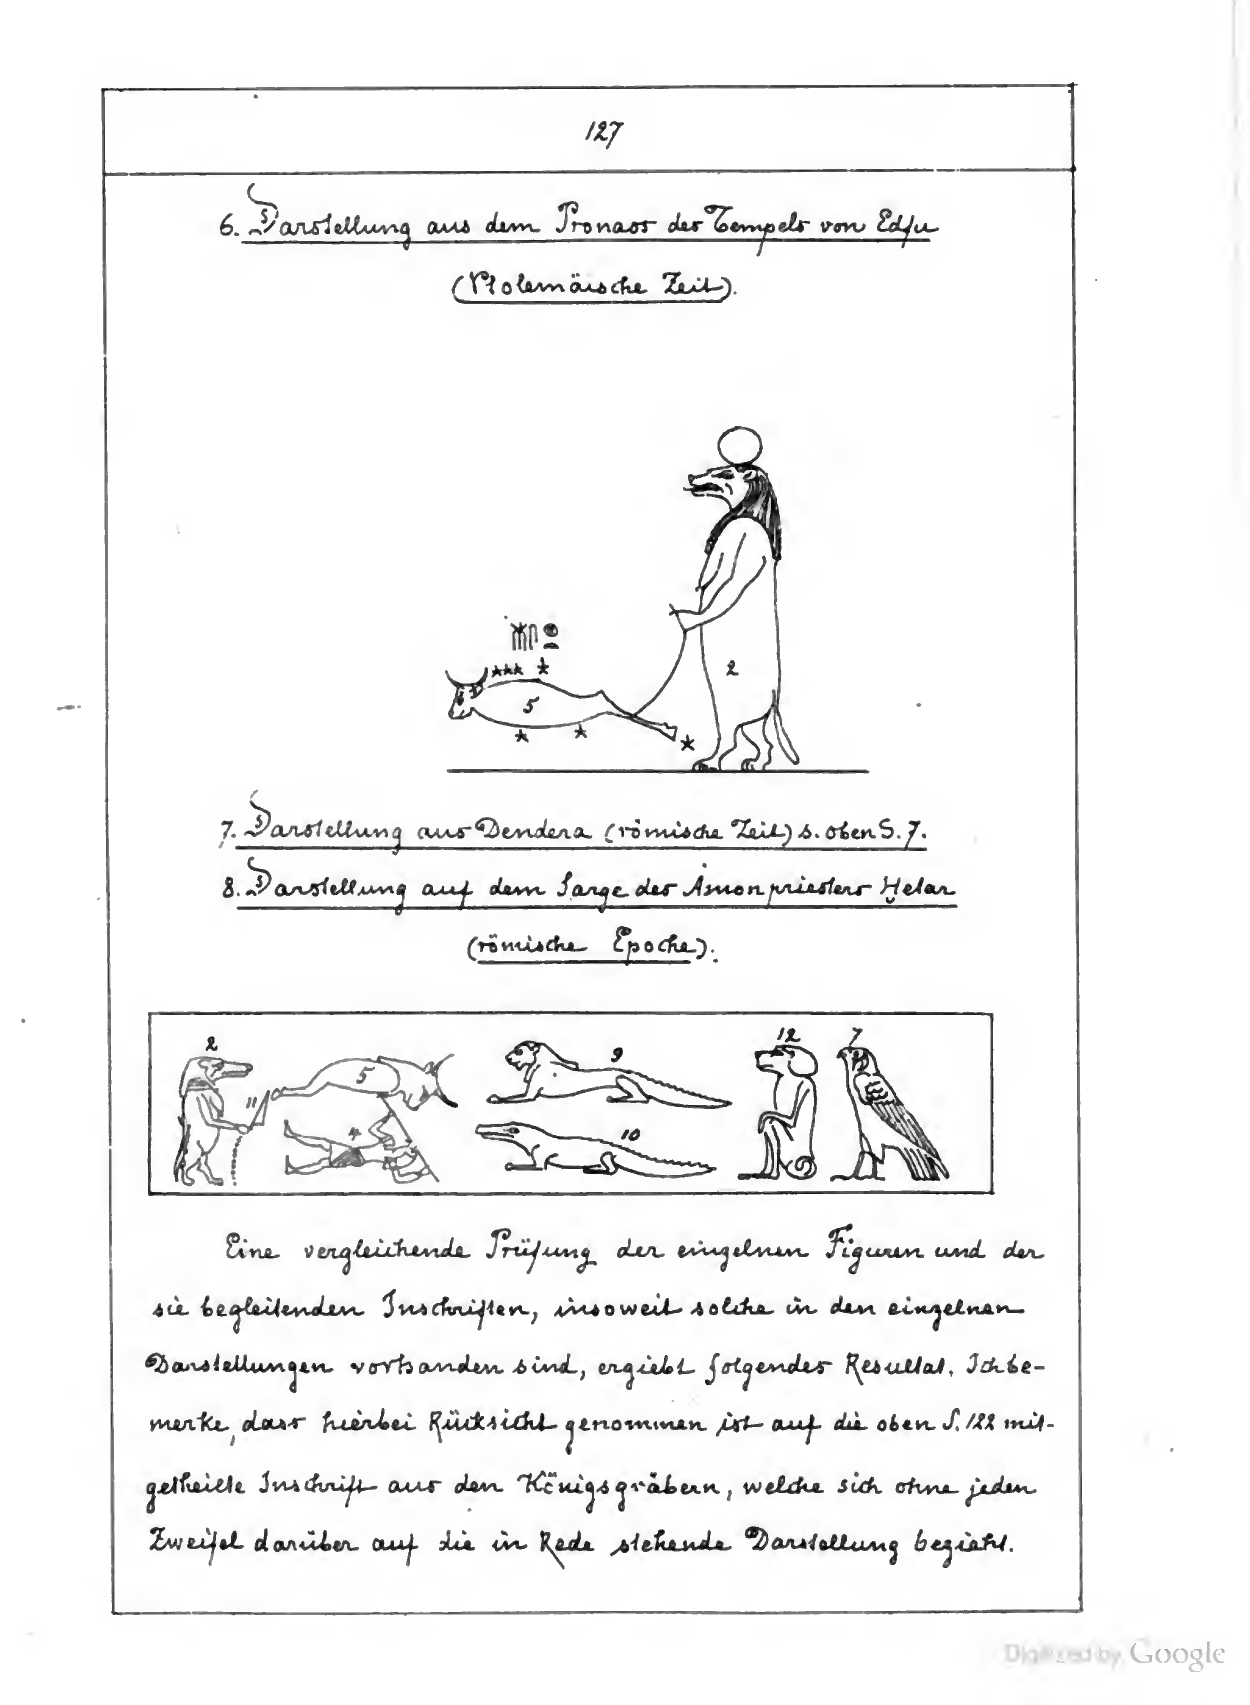 127
6. Darstellung aus dem Pronaos des Tempels von Edfu
(Ptolemäische Zeit).
2
5
7. Darstellung aus Dendera (römische Zeit) s. oben S. 7.
8. Darstellung auf dem Sarge des Amonpriesters Ḥetar
(römische Epoche).
2
11
5
4
9
10
12
7
Eine vergleichende Prüfung der einzelnen Figuren und der
sie begleitenden Inschriften, insoweit solche in den einzelnen
Darstellungen vorhanden sind, ergiebt folgendes Resultat. Ich be-
merke, dass hierbei Rücksicht genommen ist auf die oben S. 122 mit-
getheilte Inschrift aus den Königsgräbern, welche sich ohne jeden
Zweifel darüber auf die in Rede stehende Darstellung bezieht.
Digitized by Google